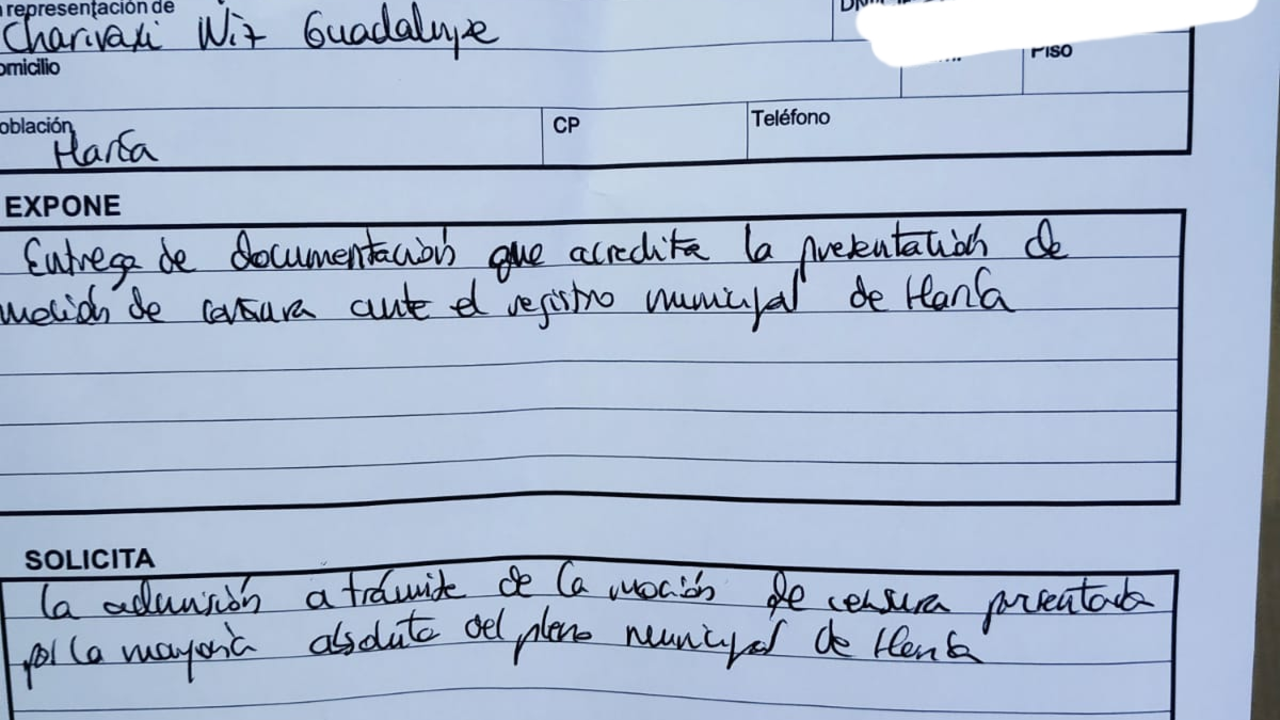 representación de
Charivari Wiz Guadalupe
omicilio
Piso
oblación
CP
Teléfono
Haría
EXPONE
Entrega de documentación que acredita la presentación de
moción de censura ante el registro municipal de Haría
SOLICITA
la admisión a trámite de la moción de censura presentada
por la mayoría absoluta del pleno municipal de Haría